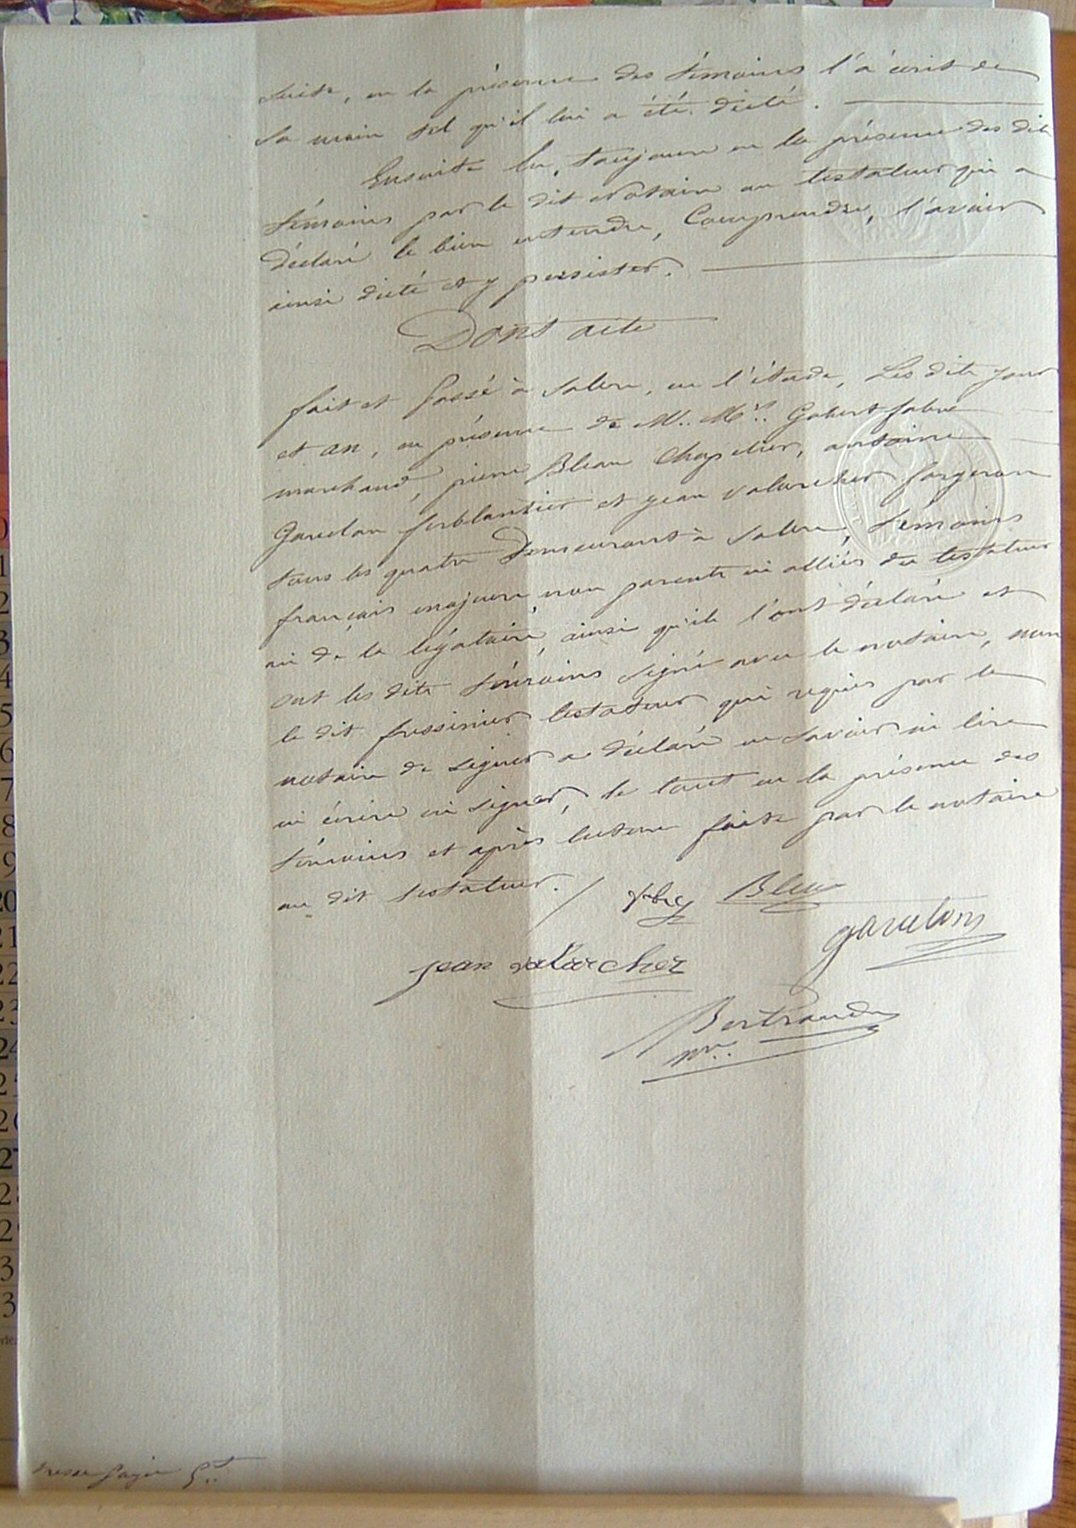 suite, en la présence des témoins l'a écrit de
sa main tel qu'il lui a été dicté.
Ensuite lu, toujours en la présence des dits
témoins par le dit notaire au testateur qui a
déclaré le bien entendre, Comprendre, l'avoir
ainsi dicté et y persister.
Dont acte
fait et passé à Salern, en l'étude, Les dits jour
et an, en présence de M.. M.rs Gabert fabre
marchand, pierre Bleau Chapelier, antoine
Gavelon ferblantier et jean valarcher forgeron
tous les quatre Demeurant à Salern, témoins
français majeurs non parents ni alliés du testateur
ni de la légataire, ainsi qu'ils l'ont déclaré et
ont les dits témoins signé avec le notaire, non
le dit frissinier testateur qui requis par le
notaire de signer a déclaré ne savoir ni lire
ni écrire ni signer, le tout en la présence des
témoins et après lecture faite par le notaire
au dit testateur.
Bleau
gavelons
jean valarcher
Bertrand
nre..
20
21
22
23
24
25
26
27